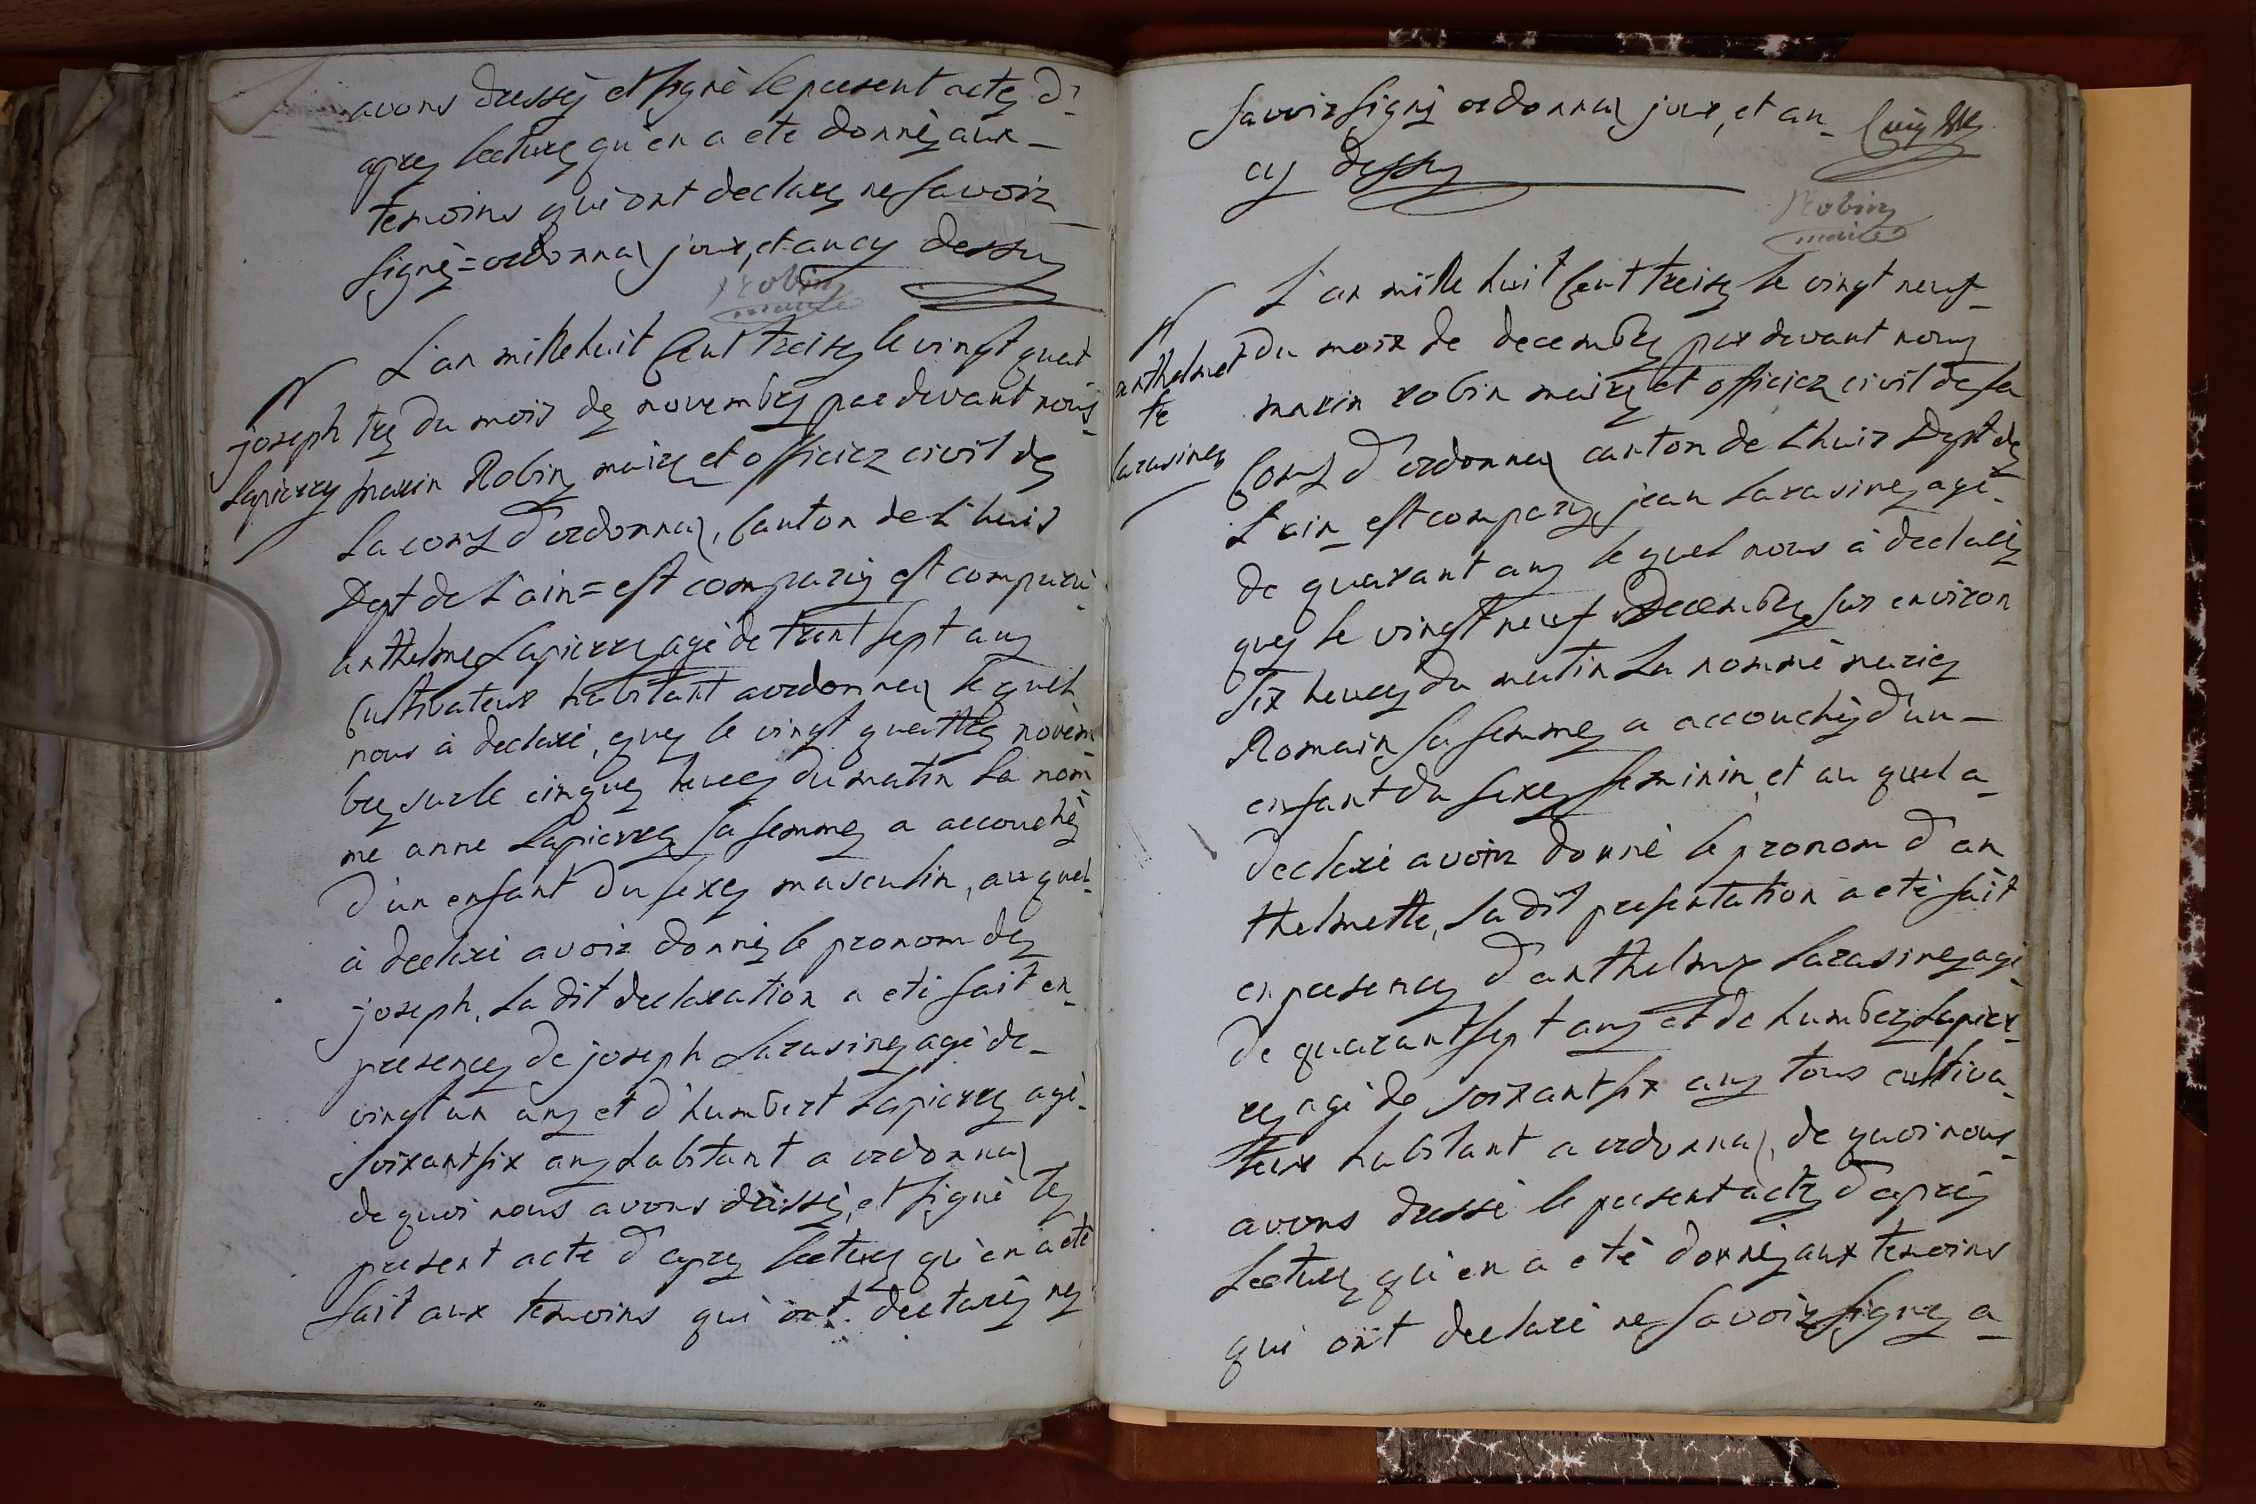 avons dressé et signé le present acte d'
apres lecture qu'en a ete donné aux
temoins qui ont declare ne savoir
signé = ordonnaz jour, et an cy dessus
Robin
maire
L'an mille huit Cent treise le vingt quat
joseph
Lapierre
tre du mois de novembre par devant nous
marin Robin maire et officier civil de
La com d'ordonnaz, Canton de L'huis
Dept de L'ain = est comparu est comparu
anthelme Lapierre agé de trent sept ans
Cultivateur habitant a ordonnaz le quel
nous à declaré, que le vingt quattre novem
bre sur le cinque heures du matin La nom
mé anne Lapierre sa femme a accouché
d'un enfant du sexe masculin, au quel
à declaré avoir donné le pronom de
joseph, La dit declaration a eté fait en
presence de joseph Sarasine agé de
vingt un ans et d'humbert Lapierre agé
soixant six ans habitant a ordonnaz
de quoi nous avons dressé, et signé le
present acte d'apres lecture qu'en a eté
fait aux temoins qui ont declaré ne
savoir signé ordonnaz jour, et an
cy dessus
Robin
maire
L'an mille huit Cent treise le vingt neuf
anthelmet
te
sarasine
du mois de decembre par devant nous
marin robin maire et officier civil de la
Com d'ordonnaz canton de Lhuis Dept de
L'ain est comparu jean sarasine agé
de quarant ans le quel nous à declaré
que le vingt neuf Decembre sur environ
six heures du matin La nommé marie
Romain sa femme a accouché d'un
enfant du sexe feminin, et au quel a
declaré avoir donné le pronom d'an
thelmette, La dit presentation a eté fait
en presence d'anthelme Sarasine agé
de quarant sept ans et de humber Lapier
re agé de soixant six ans tous cultiva
teur habitant a ordonnaz, de quoi nous
avons dressé le present acte d'apres
Lecture qu'en a eté donné aux temoins
qui ont declaré ne savoir signe a